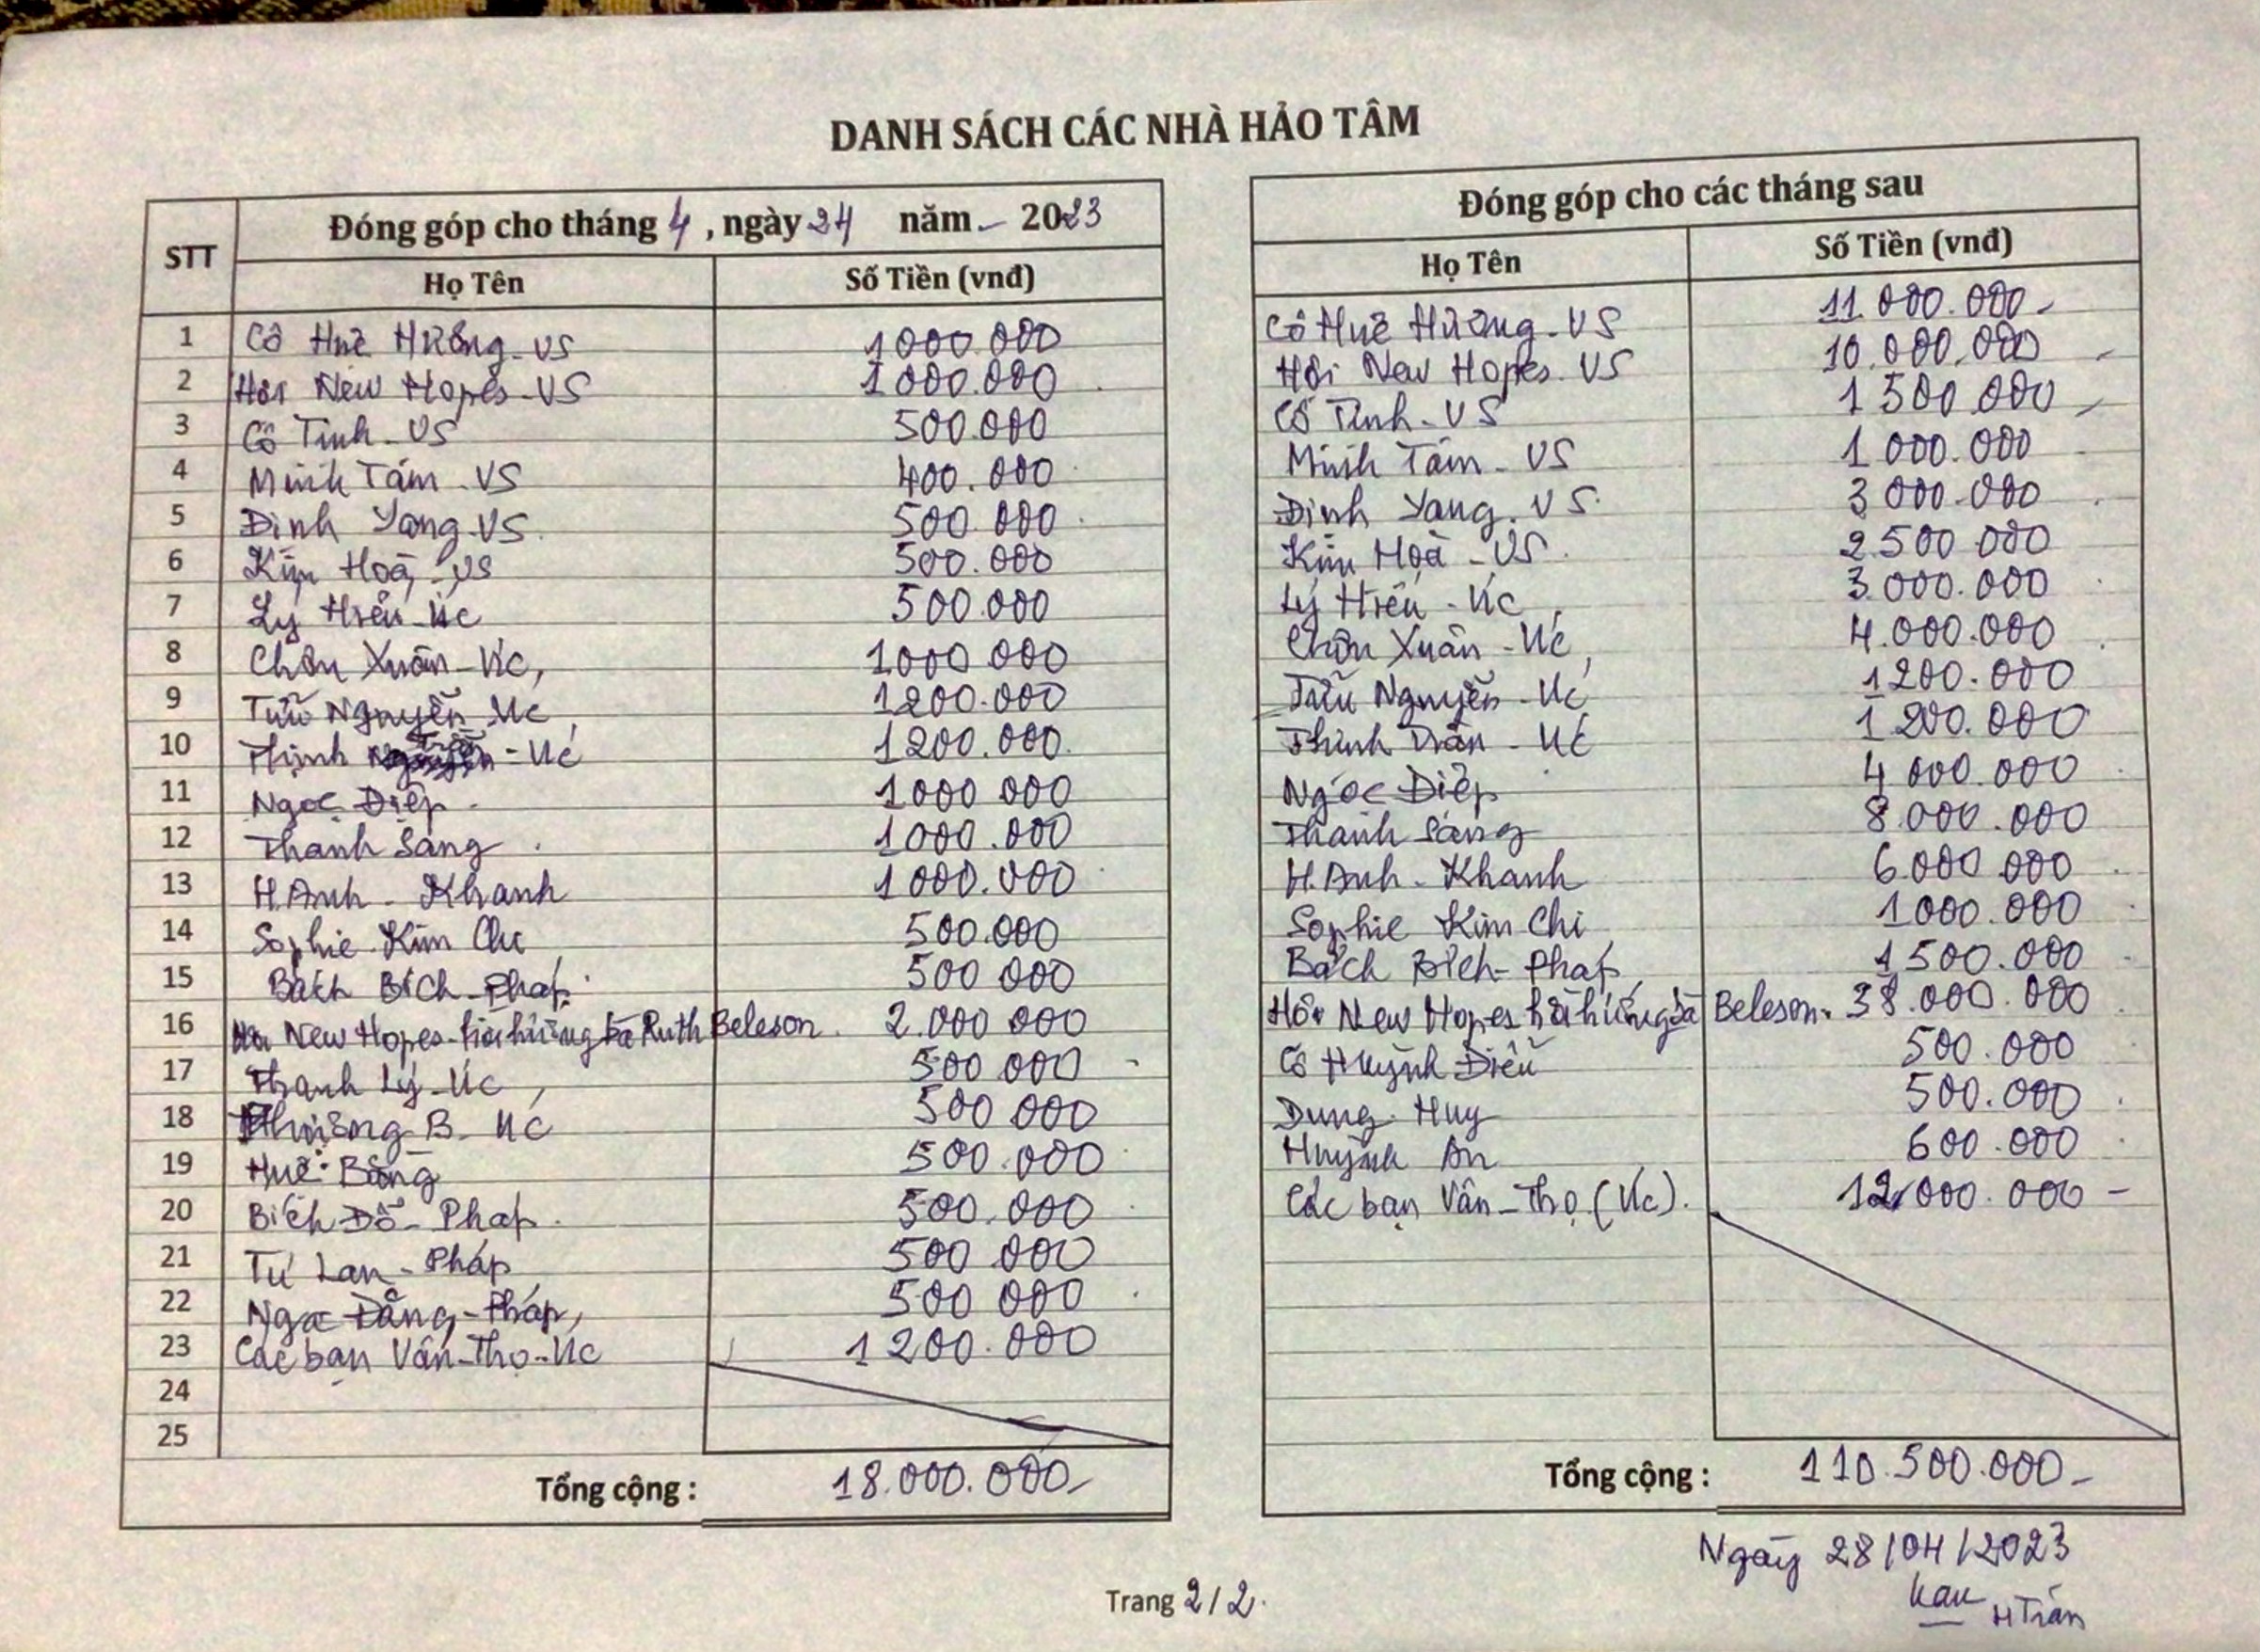 DANH SÁCH CÁC NHÀ HẢO TÂM
STT
Đóng góp cho tháng 4, ngày 24 năm - 2023
Họ Tên Số Tiền (vnđ)
1 Cô Huê Hương - VS 1000.000
2 Hội New Hopes - VS 1000.000
3 Cô Tịnh - VS 500.000
4 Minh Tâm - VS 400.000
5 Đinh Yang - VS 500.000
6 Kim Hoà - VS 500.000
7 Lý Hiếu - Úc 500.000
8 Chôn Xuân - Úc 1000.000
9 Tửu Nguyễn - Úc 1200.000
10 Thịnh Trần - Úc 1200.000
11 Ngọc Điệp 1000.000
12 Thanh Sang 1000.000
13 H.Anh - Khanh 1000.000
14 Sophie Kim Chi 500.000
15 Bách Bích - Pháp 500.000
16 Hội New Hopes - hồi hướng bà Ruth Beleson 2.000.000
17 Thanh Lý - Úc 500.000
18 Phương B - Úc 500.000
19 Huê Băng 500.000
20 Bích Đỗ - Pháp 500.000
21 Tú Lan - Pháp 500.000
22 Ngọc Đặng - Pháp 500.000
23 Các bạn Vân - Thọ - Úc 1200.000
24
25
Tổng cộng : 18.000.000
Đóng góp cho các tháng sau
Họ Tên Số Tiền (vnđ)
Cô Huê Hương - VS 11.000.000
Hội New Hopes - VS 10.000.000
Cô Tịnh - VS 1500.000
Minh Tâm - VS 1000.000
Đinh Yang - VS 3000.000
Kim Hoà - VS 2500.000
Lý Hiếu - Úc 3.000.000
Chôn Xuân - Úc 4.000.000
Tửu Nguyễn - Úc 1200.000
Thịnh Trần - Úc 1200.000
Ngọc Điệp 4000.000
Thanh Sang 8.000.000
H.Anh - Khanh 6000.000
Sophie Kim Chi 1000.000
Bách Bích - Pháp 1500.000
Hội New Hopes hồi hướng bà Beleson 38.000.000
Cô Huỳnh Diêu 500.000
Dung Huy 500.000
Huỳnh An 600.000
Các bạn Vân - Thọ (Úc). 12.000.000 -
Tổng cộng : 110.500.000 -
Ngày 28/04/2023
H Trân
Trang 2/2